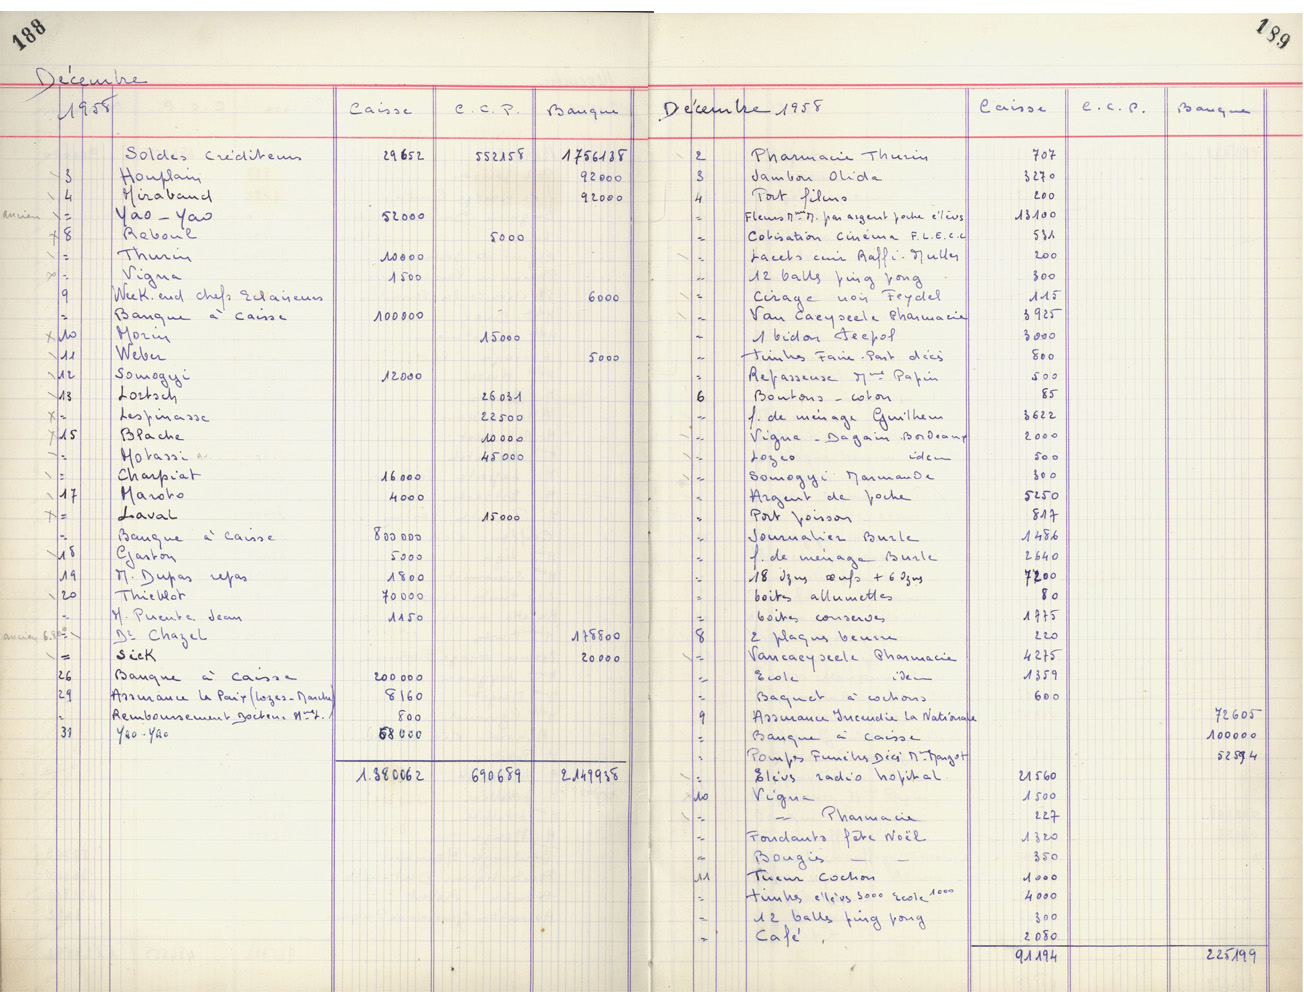 188
Décembre
1958 Caisse C.C.P. Banque
Soldes Créditeurs 29652 552158 1756138
3 Houplain 92000
4 Mirabaud 92000
ancien = Yao-Yao 52000
8 Reboul 5000
= Thurin 10000
= Vigna 1500
9 Week-end chefs Eclaireurs 6000
= Banque à Caisse 100000
10 Morin 15000
11 Weber 5000
12 Somogyi 12000
13 Loetsch 26031
= Lespinasse 22500
15 Blache 10000
= Motassi 45000
= Charpiat 16000
17 Maroto 4000
= Laval 15000
= Banque à Caisse 800000
18 Gaston 5000
19 M. Dupas repas 1800
20 Thieblot 70000
= M. Puente Jean 1150
ancien = Dr Chazel 178800
= Sick 20000
26 Banque à Caisse 200000
29 Assurance La Paix (Lozes-Marche) 8160
= Remboursement Docteur Mme L. 800
31 Yao-Yao 58000
1.380062 690689 2149938
189
Décembre 1958 Caisse C.C.P. Banque
2 Pharmacie Thurin 707
3 Jambon Olida 3270
4 Port films 200
= Fleurs Mme M. par argent poche élèves 13100
= Cotisation Cinéma F.L.E.C.C 531
= Lacets cuir Raffi-Muller 200
= 12 balles ping pong 300
= Cirage noir Feydel 115
= Van Caeyseele Pharmacie 3925
= 1 bidon Teepol 3000
= timbres Faire-Part décès 800
= Repasseuse Mme Papin 500
6 Boutons - coton 85
= f. de ménage Guilhem 3622
= Vigna - Dagain Bordeaux 2000
= Lozes idem 500
= Somogyi Marmande 300
= Argent de poche 5250
= Port poisson 817
= Journalier Burle 1486
= f. de ménage Burle 2640
= 18 dznes oeufs + 6 dznes 7200
= boites allumettes 80
= boites conserves 1775
8 2 plaques beurre 220
= Vancaeyseele Pharmacie 4275
= Ecole idem 1359
= Baquet à cochons 600
9 Assurance Incendie La Nationale 72605
= Banque à Caisse 100000
Pompes Funèbres Décès Mme Margot 52594
= Elèves radio hopital 21560
10 Vigna 1500
= — Pharmacie 227
= Fondants fête Noël 1320
= Bougies — — 350
11 Tueur Cochon 1000
= timbres élèves 3000 Ecole 1000 4000
= 12 balles ping pong 300
= Café 2080
91194 225199